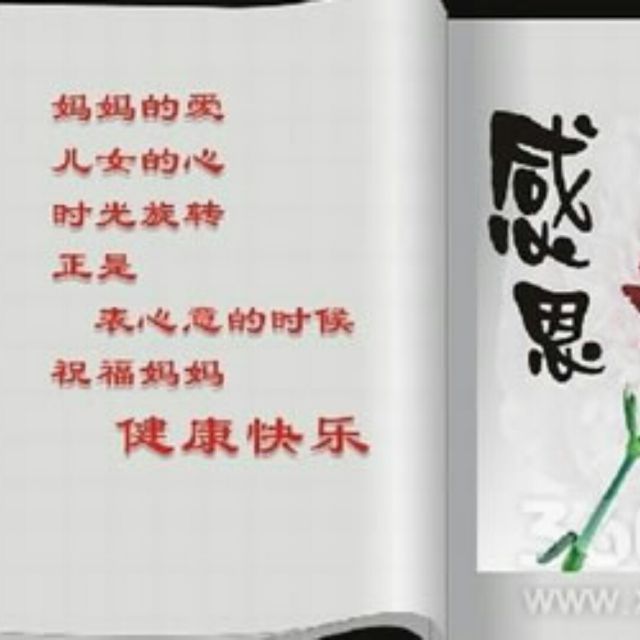 妈妈的爱
儿女的心
时光旋转
正是
表心意的时候
祝福妈妈
健康快乐
感恩
www.